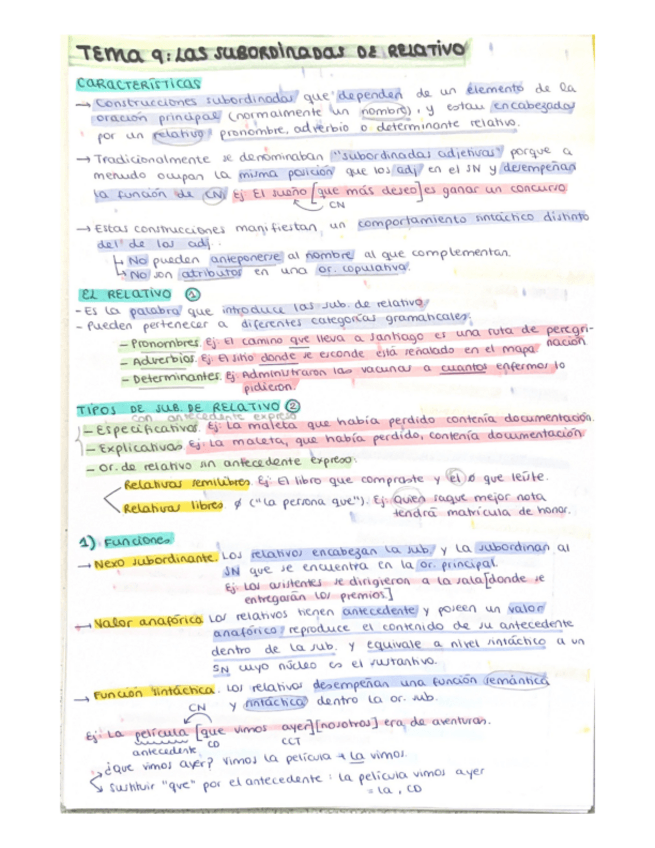 TEMA 9: LAS SUBORDINADAS DE RELATIVO
CARACTERÍSTICAS
→ Construcciones subordinadas que dependen de un elemento de la
oración principal (normalmente un nombre), y estan encabezadas
por un relativo: pronombre, adverbio o determinante relativo.
→ Tradicionalmente se denominaban "subordinadas adjetivas" porque a
menudo ocupan la misma posición que los adj en el SN y desempeñan
la función de CN. Ej El sueño [que más deseo] es ganar un concurso
CN
→ Estas construcciones manifiestan un comportamiento sintáctico distinto
del de los adj.
↳ No pueden anteponerse al nombre al que complementan.
↳ No son atributos en una or. copulativa.
EL RELATIVO ①
- Es la palabra que introduce las sub. de relativo
- Pueden pertenecer a diferentes categorías gramaticales:
- Pronombres. Ej: El camino que lleva a Santiago es una ruta de peregri-
nación
- Adverbios. Ej: El sitio donde se esconde está señalado en el mapa
- Determinantes. Ej Administraron las vacunas a cuantos enfermos lo
pidieron.
TIPOS DE SUB. DE RELATIVO ②
con antecedente expreso
- Especificativas. Ej: La maleta que había perdido contenía documentación.
- Explicativas Ej: La maleta, que había perdido, contenía documentación
- Or. de relativo sin antecedente expreso:
Relativas semilibres. Ej: El libro que compraste y el ∅ que leíste.
Relativas libres. ∅ ("La persona que"). Ej: Quien saque mejor nota
tendrá matrícula de honor.
1) Funciones
→ Nexo subordinante. Los relativos encabezan la sub. y la subordinan al
SN que se encuentra en la or. principal.
Ej: Los asistentes se dirigieron a la sala [donde se
entregarán los premios.]
→ Valor anafórico Los relativos tienen antecedente y poseen un valor
anafórico: reproduce el contenido de su antecedente
dentro de la sub. y equivale a nivel sintáctico a un
SN cuyo núcleo es el sustantivo.
→ Función sintáctica. Los relativos desempeñan una función semántica
y sintáctica dentro la or. sub.
CN
Ej: La película [que vimos ayer] [nosotros] era de aventuras.
antecedente CD CCT
¿Que vimos ayer? Vimos la película → La vimos.
Sustituir "que" por el antecedente: La película vimos ayer
= la, CD